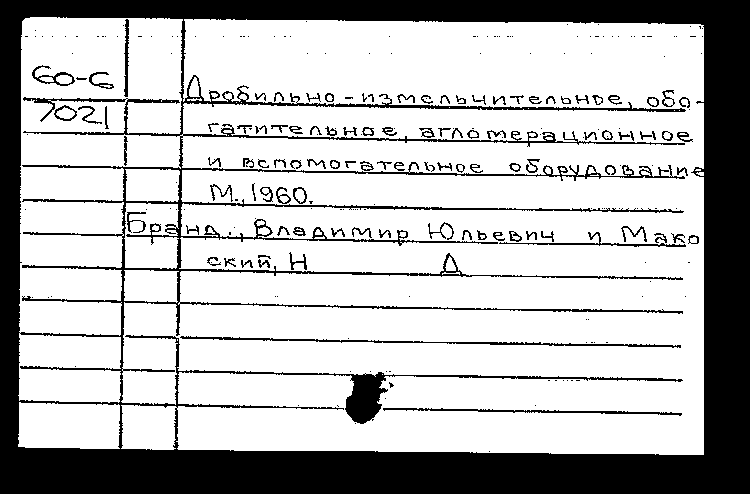 60-6
7021
Дробильно-измельчительное, обо-
гатительное, агломерационное
и вспомогательное оборудование
М., 1960.
Бранд., Владимир Юльевич и Мако
ский, Н Д